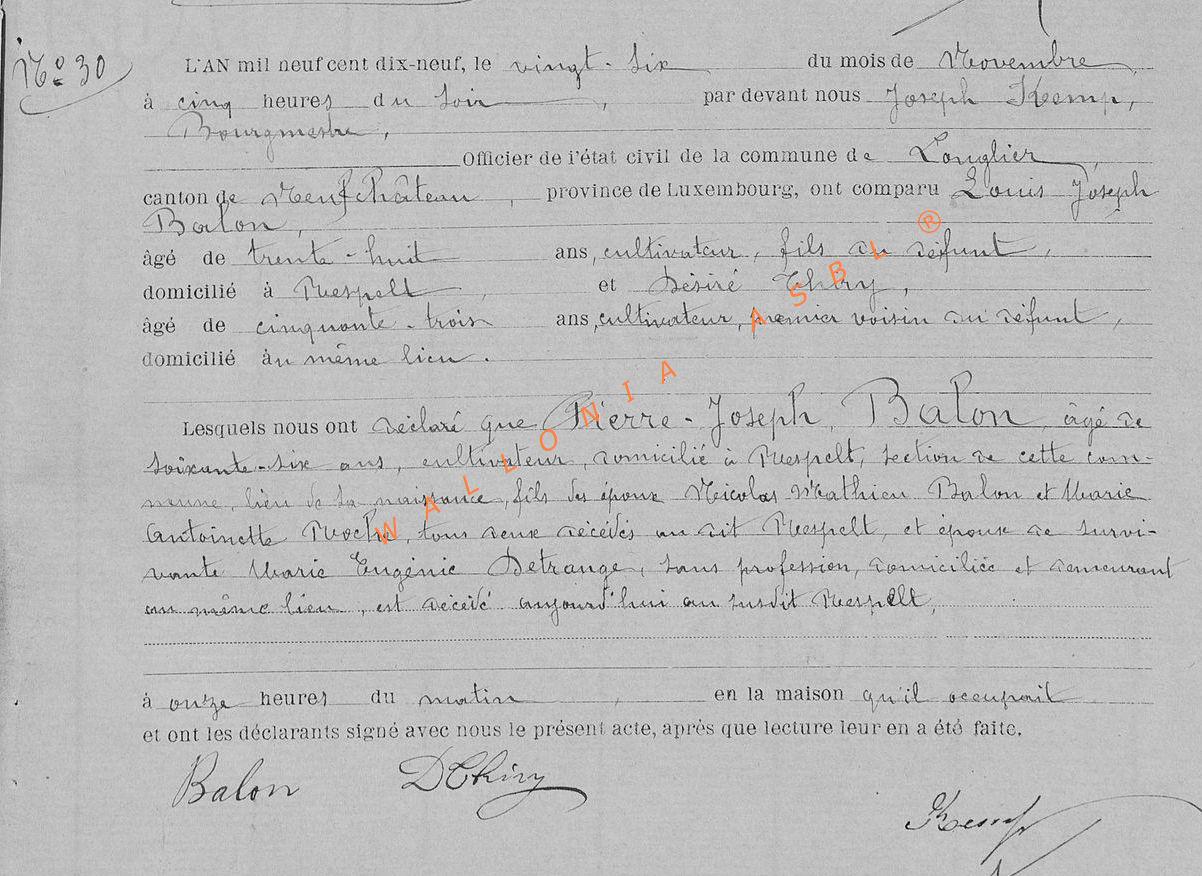 No 30
L'AN mil neuf cent dix-neuf, le vingt-six du mois de Novembre,
à cinq heures du soir, par devant nous Joseph Kemp,
Bourgmestre,
Officier de l'état civil de la commune de Longlier,
canton de Neufchâteau, province de Luxembourg, ont comparu Louis Joseph
Balon,
âgé de trente-huit ans, cultivateur, fils du défunt,
domicilié à Respelt, et Désiré Thiry,
âgé de cinquante-trois ans, cultivateur, premier voisin du défunt,
domicilié au même lieu.
Lesquels nous ont déclaré que Pierre-Joseph Balon, âgé de
soixante-six ans, cultivateur, domicilié à Respelt, section de cette com-
mune, lieu de sa naissance, fils des époux Nicolas Mathieu Balon et Marie
Antoinette Roche, tous deux décédés au dit Respelt, et époux de survi-
vante Marie Eugénie Detrange, sans profession, domiciliée et demeurant
au même lieu, est décédé aujourd'hui au susdit Respelt,
à onze heures du matin, en la maison qu'il occupait
et ont les déclarants signé avec nous le présent acte, après que lecture leur en a été faite.
Balon DThiry
Kemp
WALLONIA ASBL ®